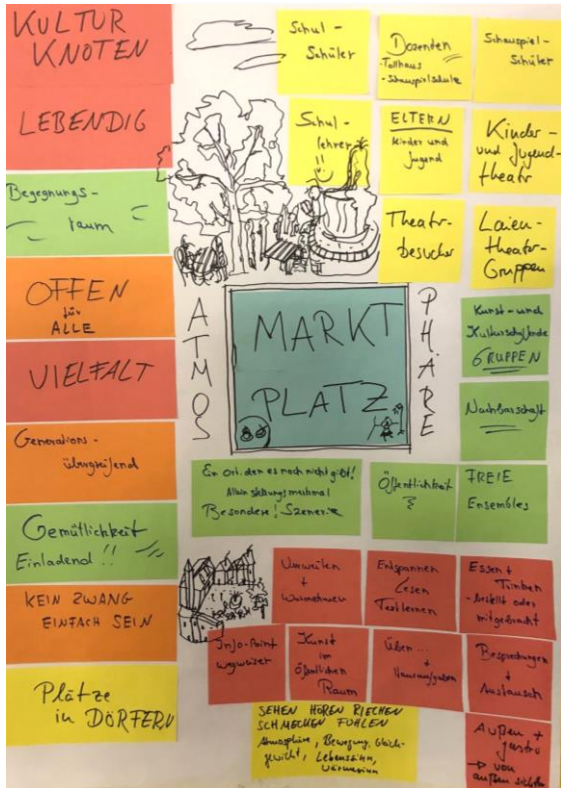 KULTUR
KNOTEN
LEBENDIG
Begegnungs-
raum
OFFEN
für
ALLE
VIELFALT
Generations-
übergreifend
Gemütlichkeit
Einladend!!
KEIN ZWANG
EINFACH SEIN
Plätze
in DÖRFERN
Schul-
Schüler
Dozenden
-Tollhaus
-Schauspielschule
Schauspiel-
Schüler
Schul-
lehrer
ELTERN
Kinder und
Jugend
Kinder-
und Jugend-
theatr
Theatr-
besucher
Laien-
theater-
Gruppen
ATMOS
MARKT
PLATZ
PHÄRE
Kunst- und
Kulturschaffende
GRUPPEN
Nachbarschaft
Ein Ort, den es noch nicht gibt!
Alleinstellungsmerkmal
Besondere! Szenerie
Öffentlichkeit
FREIE
Ensembles
Verweilen
+
Wahrnehmen
Entspannen
Lesen
Textlernen
Essen +
Trinken
- bestellt oder
mitgebracht
Info-Point
Wegweiser
Kunst
im
öffentlichen
Raum
Üben...
+
Hausaufgaben
Besprechungen
+
Austausch
SEHEN HÖREN RIECHEN
SCHMECKEN FÜHLEN
Atmosphäre, Bewegung, Gleich-
gewicht, Lebenssinn,
Wärmesinn
Außen +
gastro
→ von
außen sichtbar